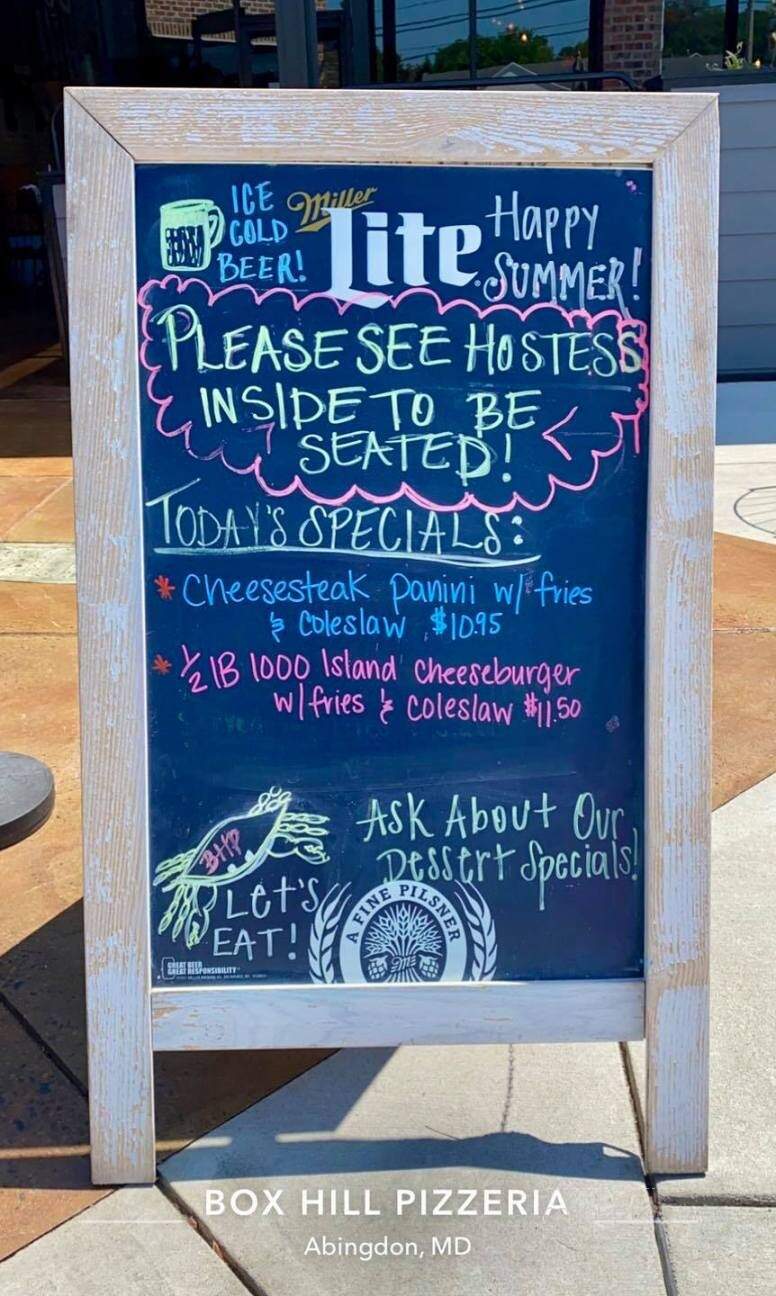 ICE
COLD
BEER!
Miller
Lite
Happy
SUMMER!
PLEASE SEE HOSTESS
INSIDE TO BE
SEATED!
TODAY'S SPECIALS:
* Cheesesteak Panini w/ fries
& Coleslaw $10.95
* 1/2 lB 1000 Island cheeseburger
w/ fries & coleslaw $11.50
BHP
LET'S
EAT!
ASK About Our
Dessert Specials!
A FINE PILSNER
GREAT BEER
GREAT RESPONSIBILITY
BOX HILL PIZZERIA
Abingdon, MD